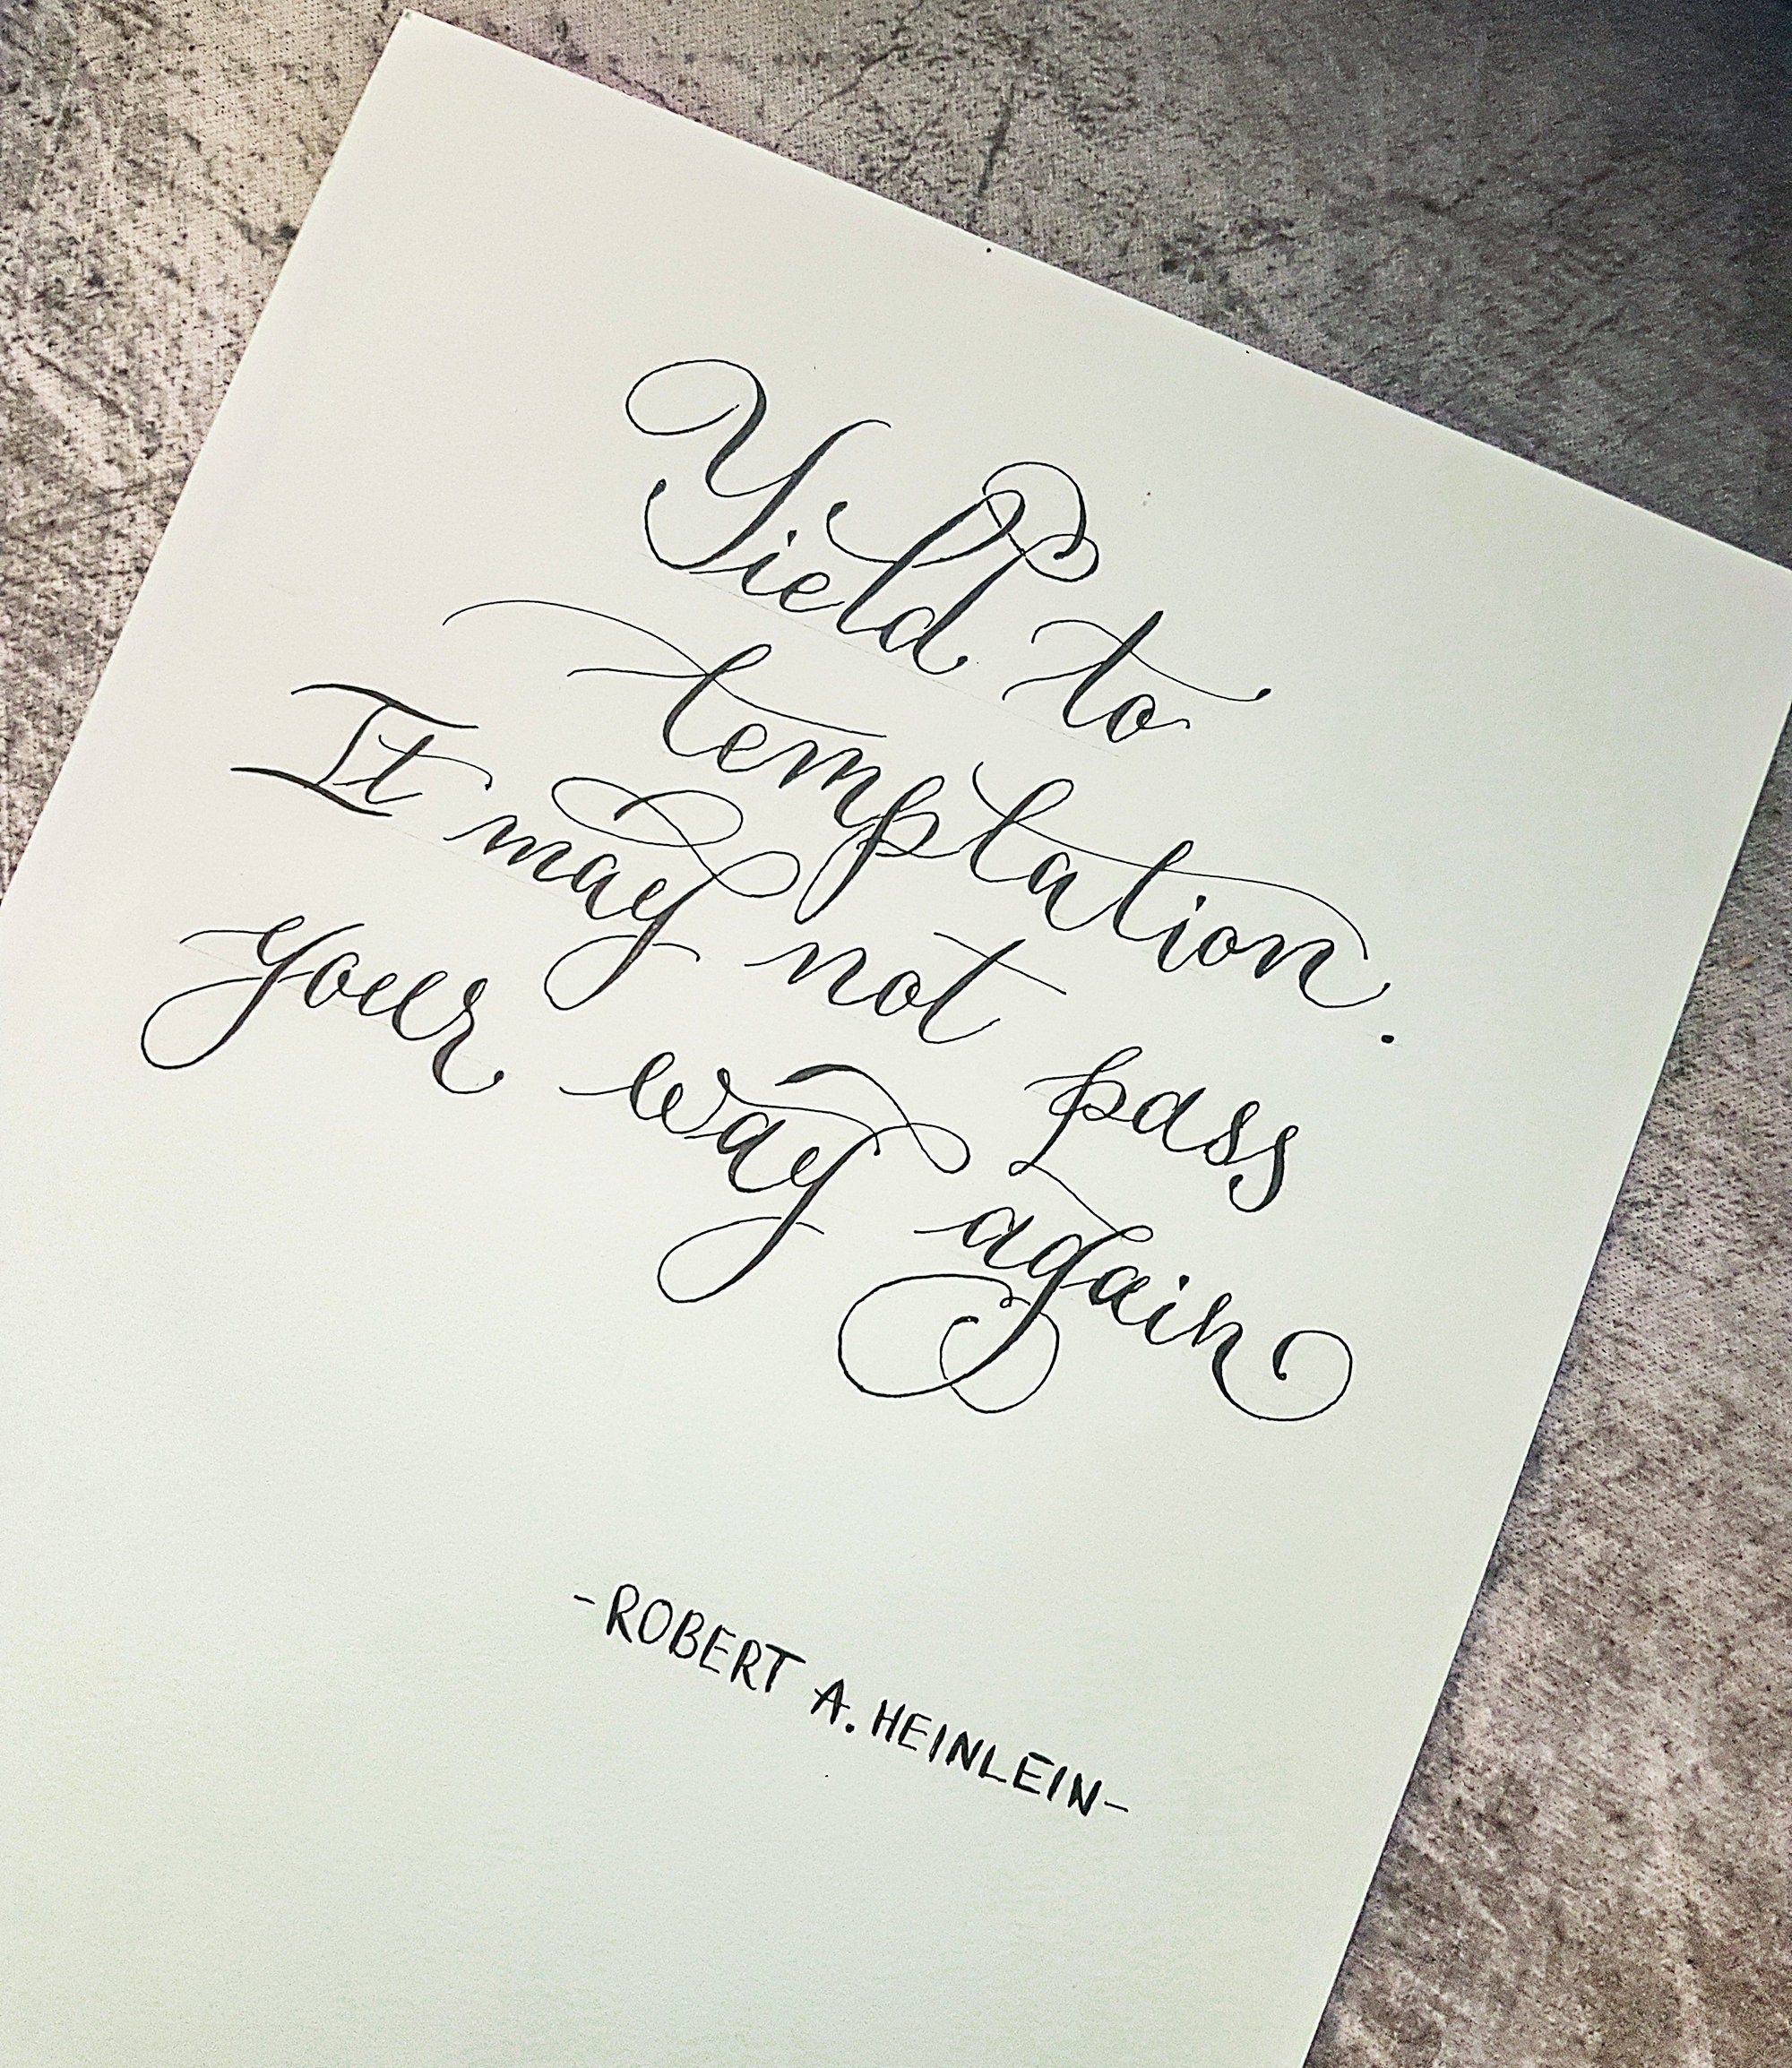 Yield to
temptation.
It may not pass
your way again
-ROBERT A. HEINLEIN-